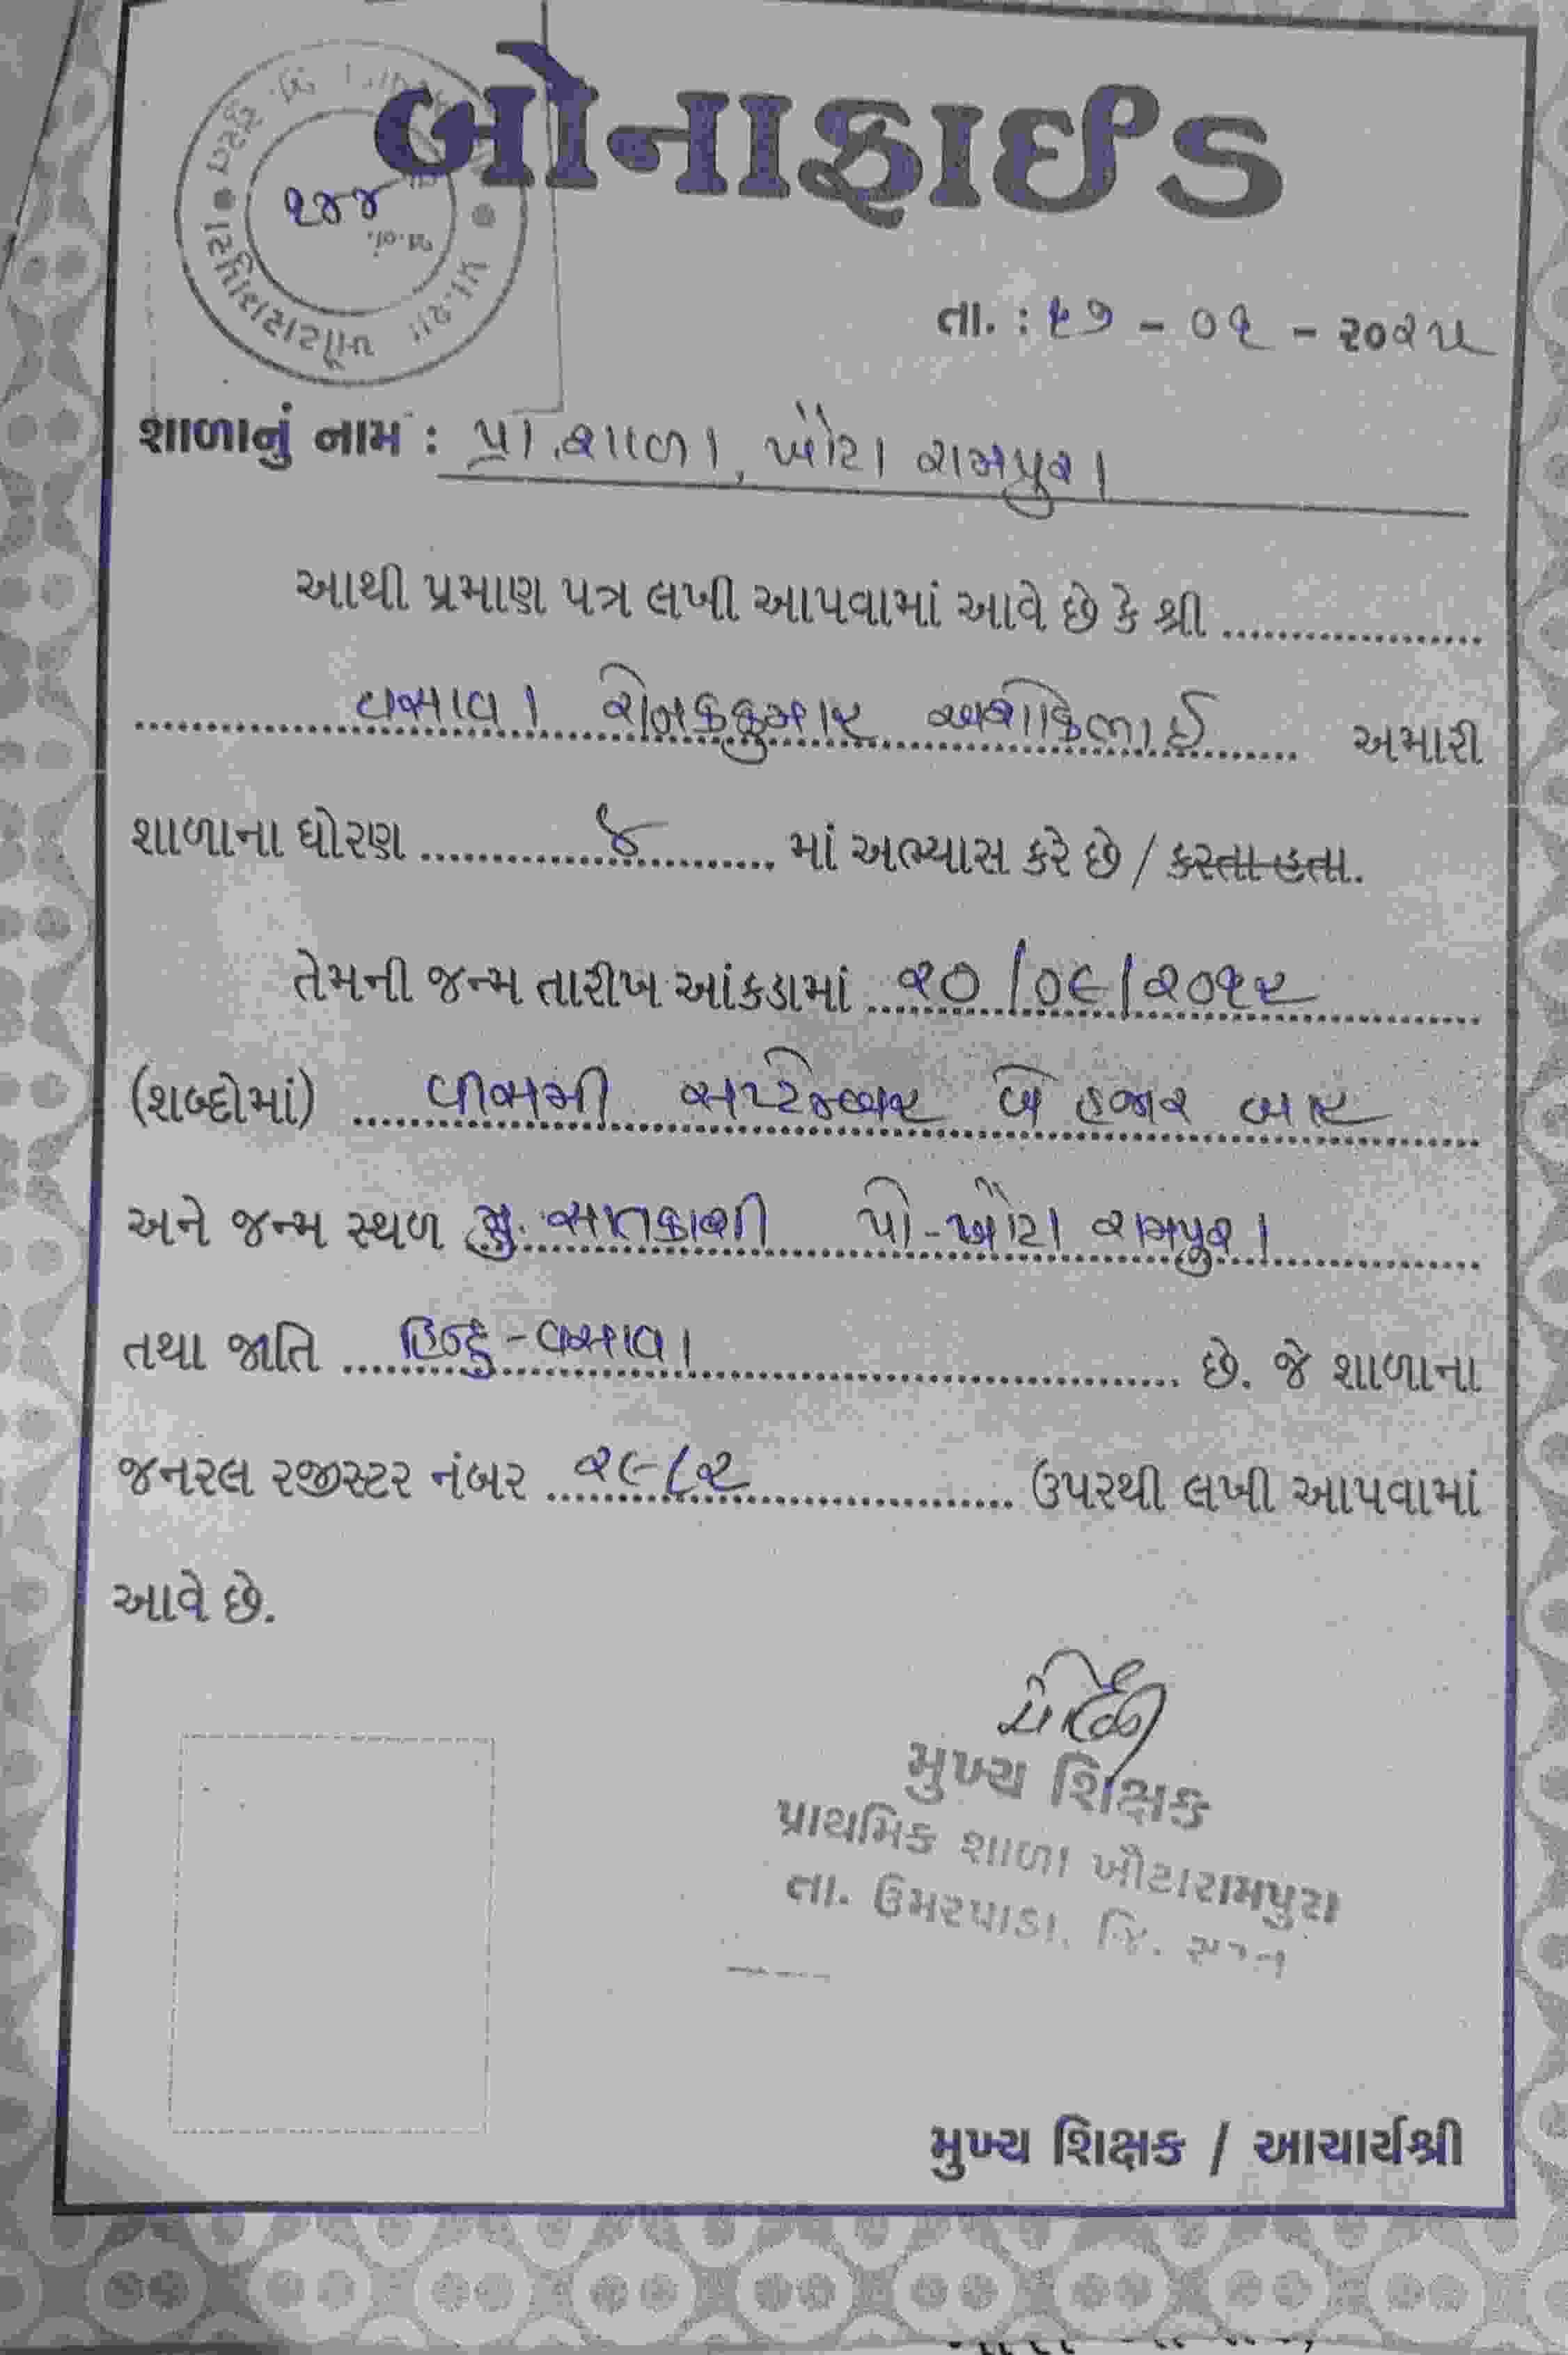 બોનાફાઈડ
૧૪૪
જા.નં.
પ્રા.શા. ખૌટારામપુરા
તા. : ૧૭ - ૦૧ - ૨૦૨૫
શાળાનું નામ : પ્રા.શાળા, ખૌટા રામપુરા
આથી પ્રમાણ પત્ર લખી આપવામાં આવે છે કે શ્રી
વસાવા રોનકકુમાર અશોકભાઈ અમારી
શાળાના ધોરણ ૪ માં અભ્યાસ કરે છે / કરતા હતા.
તેમની જન્મ તારીખ આંકડામાં ૨૦/૦૯/૨૦૧૨
(શબ્દોમાં) વીસમી સપ્ટેમ્બર બે હજાર બાર
અને જન્મ સ્થળ મુ. સાતકાશી પો-ખૌટા રામપુરા
તથા જાતિ હિન્દુ-વસાવા છે. જે શાળાના
જનરલ રજીસ્ટર નંબર ૨૯૮૨ ઉપરથી લખી આપવામાં
આવે છે.
મુખ્ય શિક્ષક
પ્રાથમિક શાળા ખૌટારામપુરા
તા. ઉમરપાડા, જિ. સુરત
મુખ્ય શિક્ષક / આચાર્યશ્રી